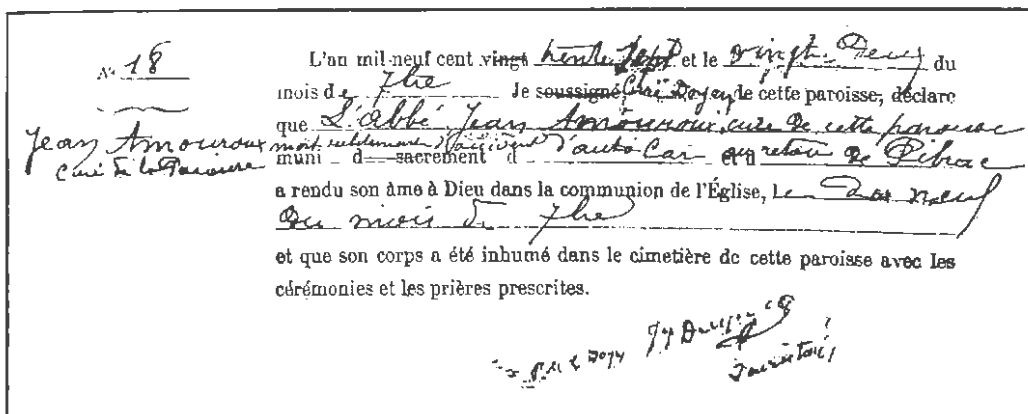 N° 18
Jean Amouroux
Curé de la Paroisse
L'an mil neuf cent vingt trente sept et le vingt-Deux du
mois de 7bre Je soussigné Curé Doyen de cette paroisse, déclare
que L'Abbé Jean Amouroux, curé de cette paroisse
mort subitement d'accident d'auto Car au retour de Pibrac
muni d sacrement d et a
a rendu son âme à Dieu dans la communion de l'Église, le Dix neuf
Du mois de 7bre
et que son corps a été inhumé dans le cimetière de cette paroisse avec les
cérémonies et les prières prescrites.